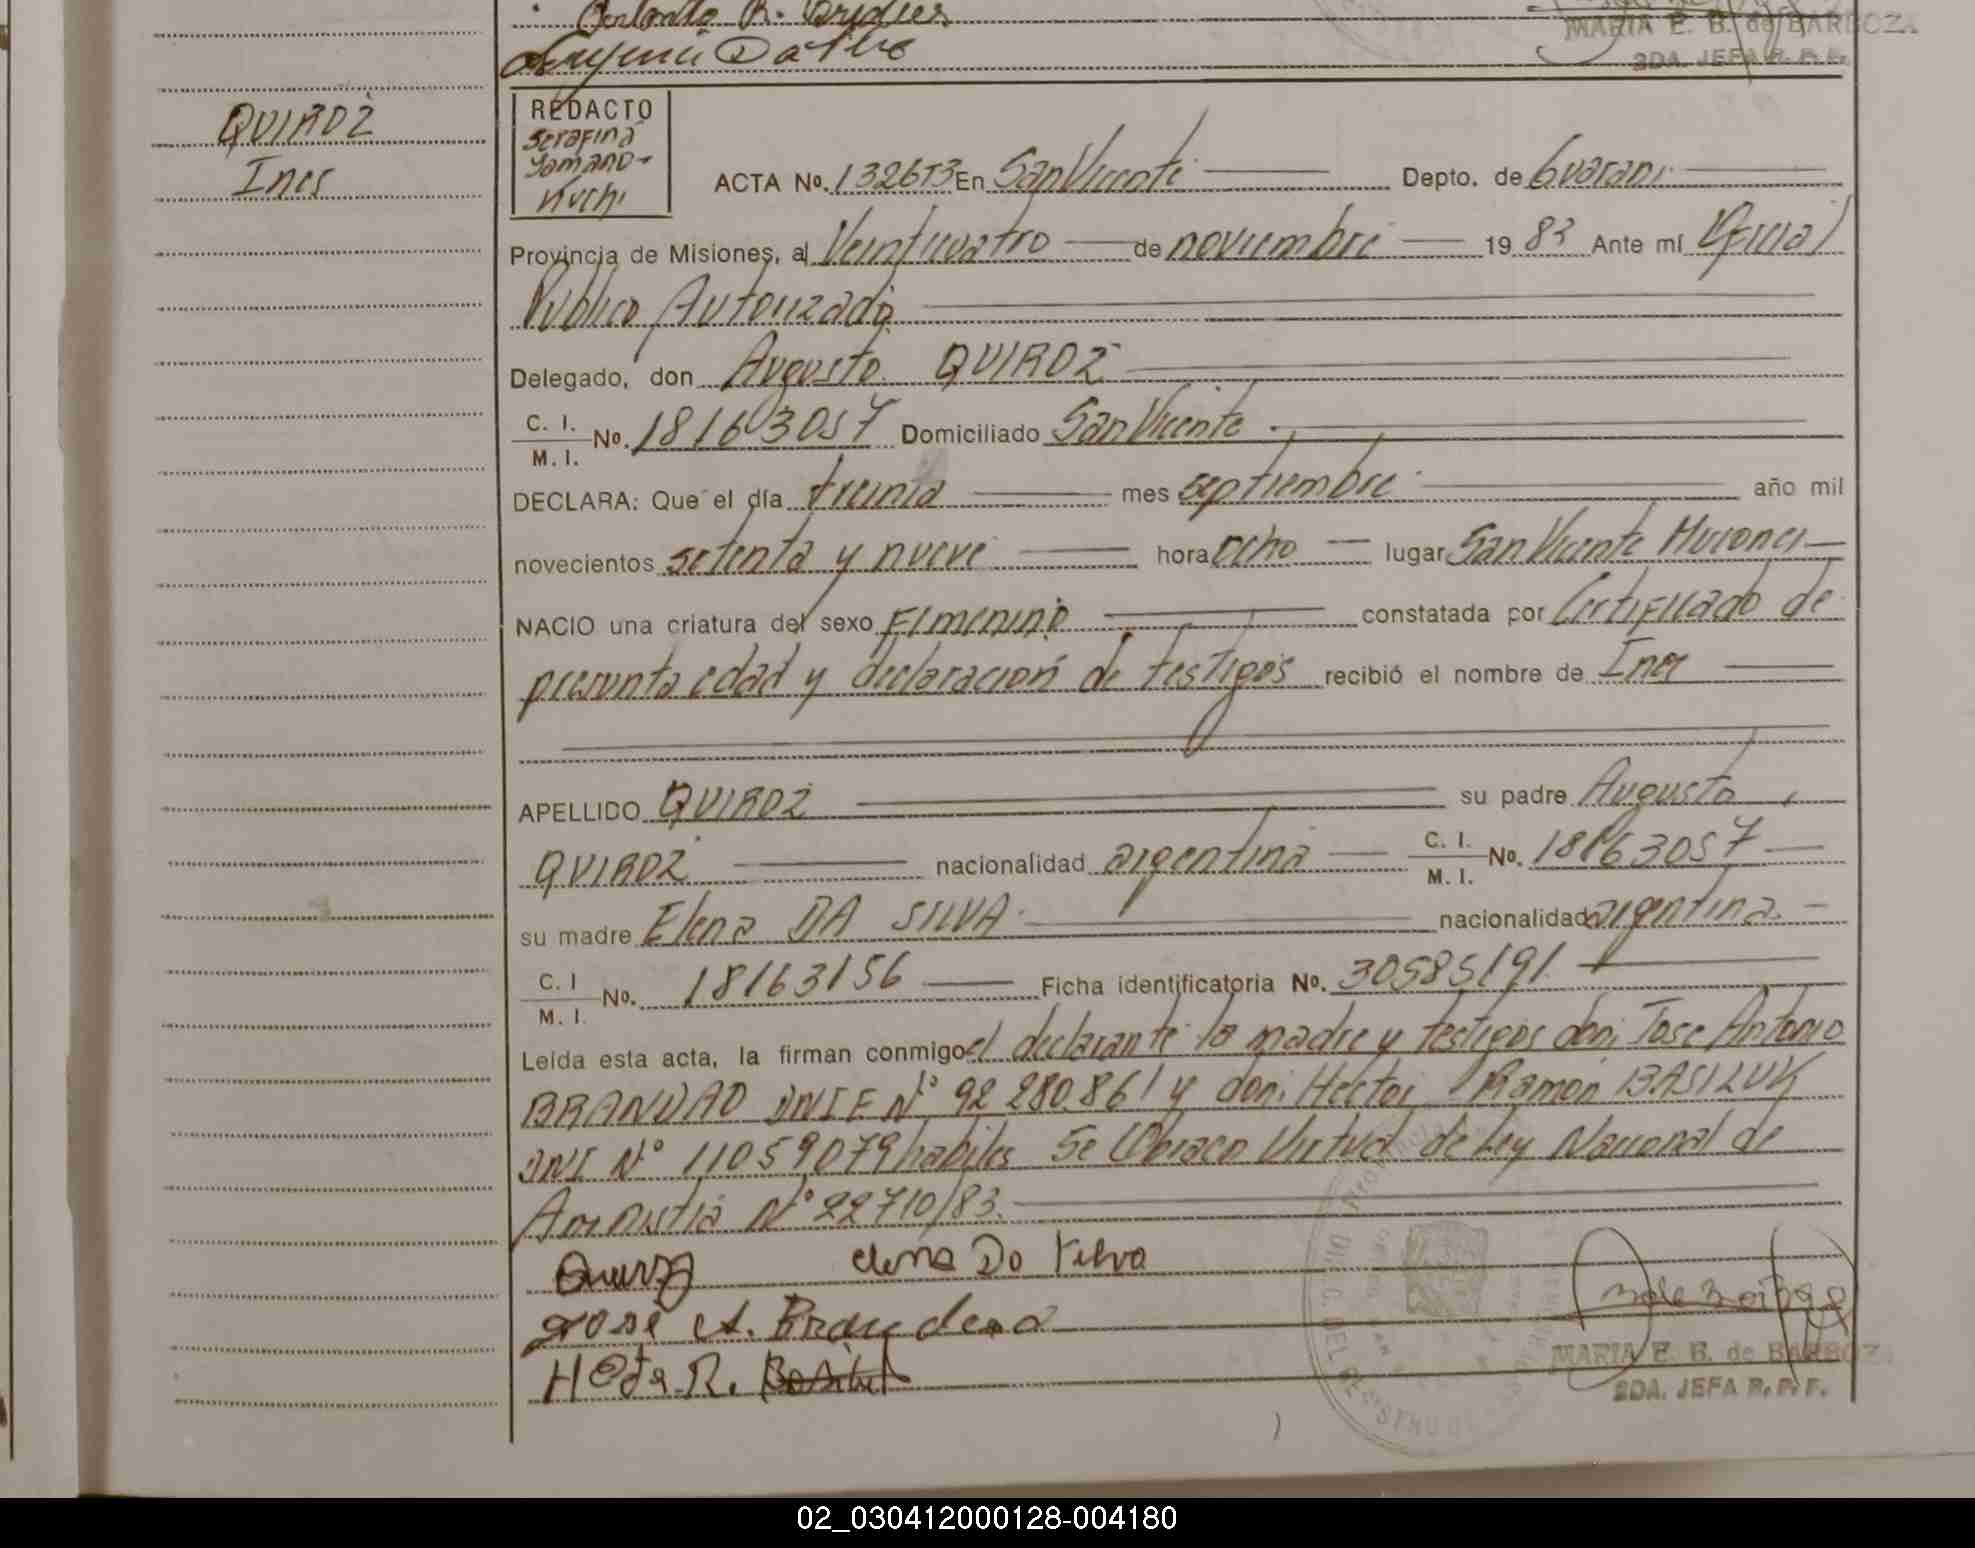 MARIA E. B. de BARBOZA
2DA. JEFA R. P. P.
QUIROZ
Ines
REDACTO
Serafina
Yamano-
Kuchi
ACTA No. 132653 En San Vicente Depto. de Guarani
Provincia de Misiones, al Veinticuatro de noviembre 19 83 Ante mí Oficial
Publico Autorizado
Delegado, don Augusto QUIROZ
C. I.
M. I. No. 18163057 Domiciliado San Vicente
DECLARA: Que el día treinta mes septiembre año mil
novecientos setenta y nueve hora ocho lugar San Vicente
NACIO una criatura del sexo Femenino constatada por Certificado de
presunta edad y declaracion de testigos recibió el nombre de Ines
APELLIDO QUIROZ su padre Augusto
QUIROZ nacionalidad argentina C. I.
M. I. No. 18163057
su madre Elena DA SILVA nacionalidad argentina
C. I
M. I. No. 18163156 Ficha identificatoria No. 30585191
Leída esta acta, la firman conmigo el declarante la madre y testigos don: Jose Antonio
BRANDAO DNI E N° 92.280.861 y don: Hector Ramon BASILUK
DNI N° 11059079 habiles Se Labra en Virtud de Ley Nacional de
Amnistia N° 22710/83.
Quiroz elena Da Silva
José A.
R.
MARIA E. B. de BARBOZA
2DA. JEFA R. P. P.
02_030412000128-004180